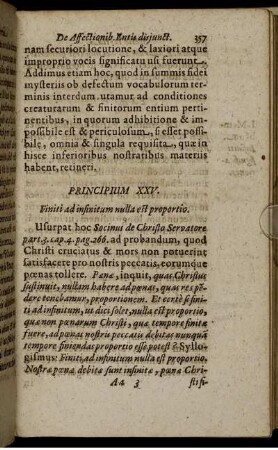 De Affectionib. Entis disjunct. 357
nam securiori locutione, & laxiori atque
improprio vocis significatu usi fuerunt.
Addimus etiam hoc, quod in summis fidei
mysteriis ob defectum vocabulorum ter-
minis interdum utamur ad conditiones
creaturarum & finitorum entium perti-
nentibus, in quorum adhibitione & im-
possibile est & periculosum, si esset possi-
bile, omnia & singula requisita, quæ in
hisce inferioribus nostratibus materiis
habent, retineri.
PRINCIPIUM XXV.
Finiti ad infinitum nulla est proportio.
Usurpat hoc Socinus de Christo Servatore
part. 3. cap. 4. pag. 266. ad probandum, quod
Christi cruciatus & mors non potuerint
satisfacere pro nostris peccatis, eorumque
pœnas tollere. Pœnæ, inquit, quas Christus
sustinuit, nullam habere ad pœnas, quas nos pē-
dere tenebamur, proportionem. Et certè si fini-
ti ad infinitum, ut dici solet, nulla est proportio,
quæ non pœnarum Christi, quæ tempore finitæ
fuere, ad pœnas nostris peccatis debitas nunquā
tempore finiendas proportio esse potest? Syllo-
gismus: Finiti, ad infinitum nulla est proportio.
Nostræ pœnæ debitæ sunt infinitæ, pœnæ Chri-
Aa 3 sti fi-